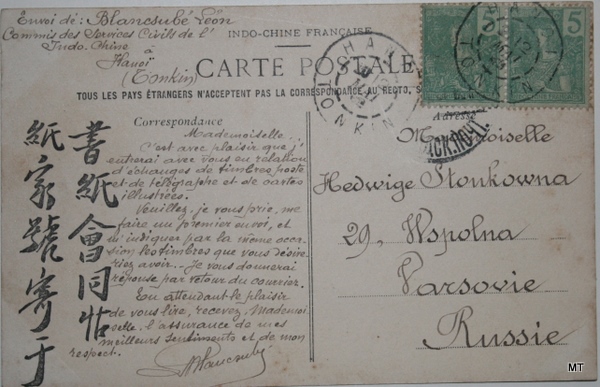 Envoi de : Blancsubé Léon
Commis des Services Civils de l'
Indo-Chine
à
Hanoï
(Tonkin)
INDO-CHINE FRANÇAISE
CARTE POSTALE
TOUS LES PAYS ÉTRANGERS N'ACCEPTENT PAS LA CORRESPONDANCE AU RECTO, S
5
5
HANOI
TONKIN
TONKIN
Correspondance
Mademoiselle.
C'est avec plaisir que j'
entrerai avec vous en relation
d'échanges de timbres poste
et de télégraphe et de cartes
illustrées.
Veuillez, je vous prie, me
faire un premier envoi, et
m'indiquer par la même occa-
sion les timbres que vous désire-
riez avoir. Je vous donnerai
réponse par retour du courrier.
En attendant le plaisir
de vous lire, recevez, Mademoi-
selle, l'assurance de mes
meilleurs sentiments et de mon
respect.
Blancsubé
書紙會同
紙家號寄于
Adresse
Mademoiselle
Hedwige Stonkowna
29, Wspolna
Varsovie
Russie
MT